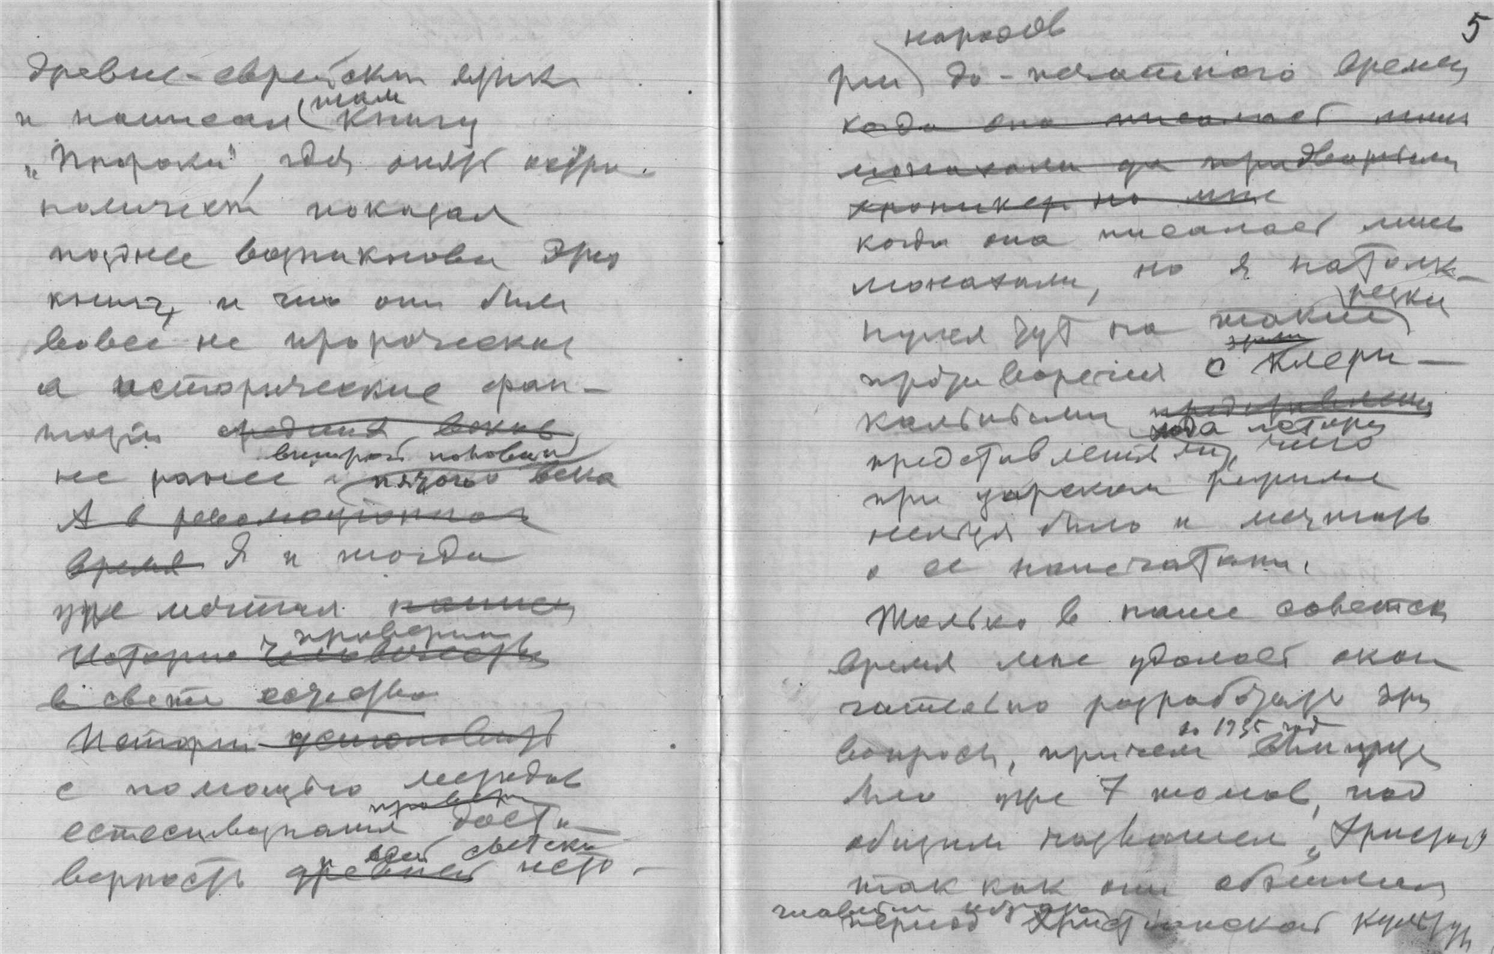 древне-еврейский язык
и написал там книгу
„Пророки", где опять астро-
номически показал
позднее возникнове этих
книг, и что они были
вовсе не пророческие
а исторические фан-
тазии средних веков
второй половины
не ранее пятого века
А в революционное
время Я и тогда
уже мечтал
проверить
Историю человечества
в свете естество
Истории установить
с помощью методов
проверить
естествознания досто-
всей светской
верность древней исто-
5
народов
рии до-печатного времени
когда она писалась лишь
монахами да придворными
хроникер но мне
когда она писалась лишь
монахами, но я натолк-
резкие
нулся тут на такие
противоречия с клери-
кальными
представлениями, что
при царском режиме
нельзя было и мечтать
о ее напечатании.
Только в наше советск
время мне удалось окон
чательно разработать эти
до 1935 год
вопросы, причем
было уже 7 томов, под
общим названием „Христос"
так как они обнимали
главным образом
период Христианской культуры